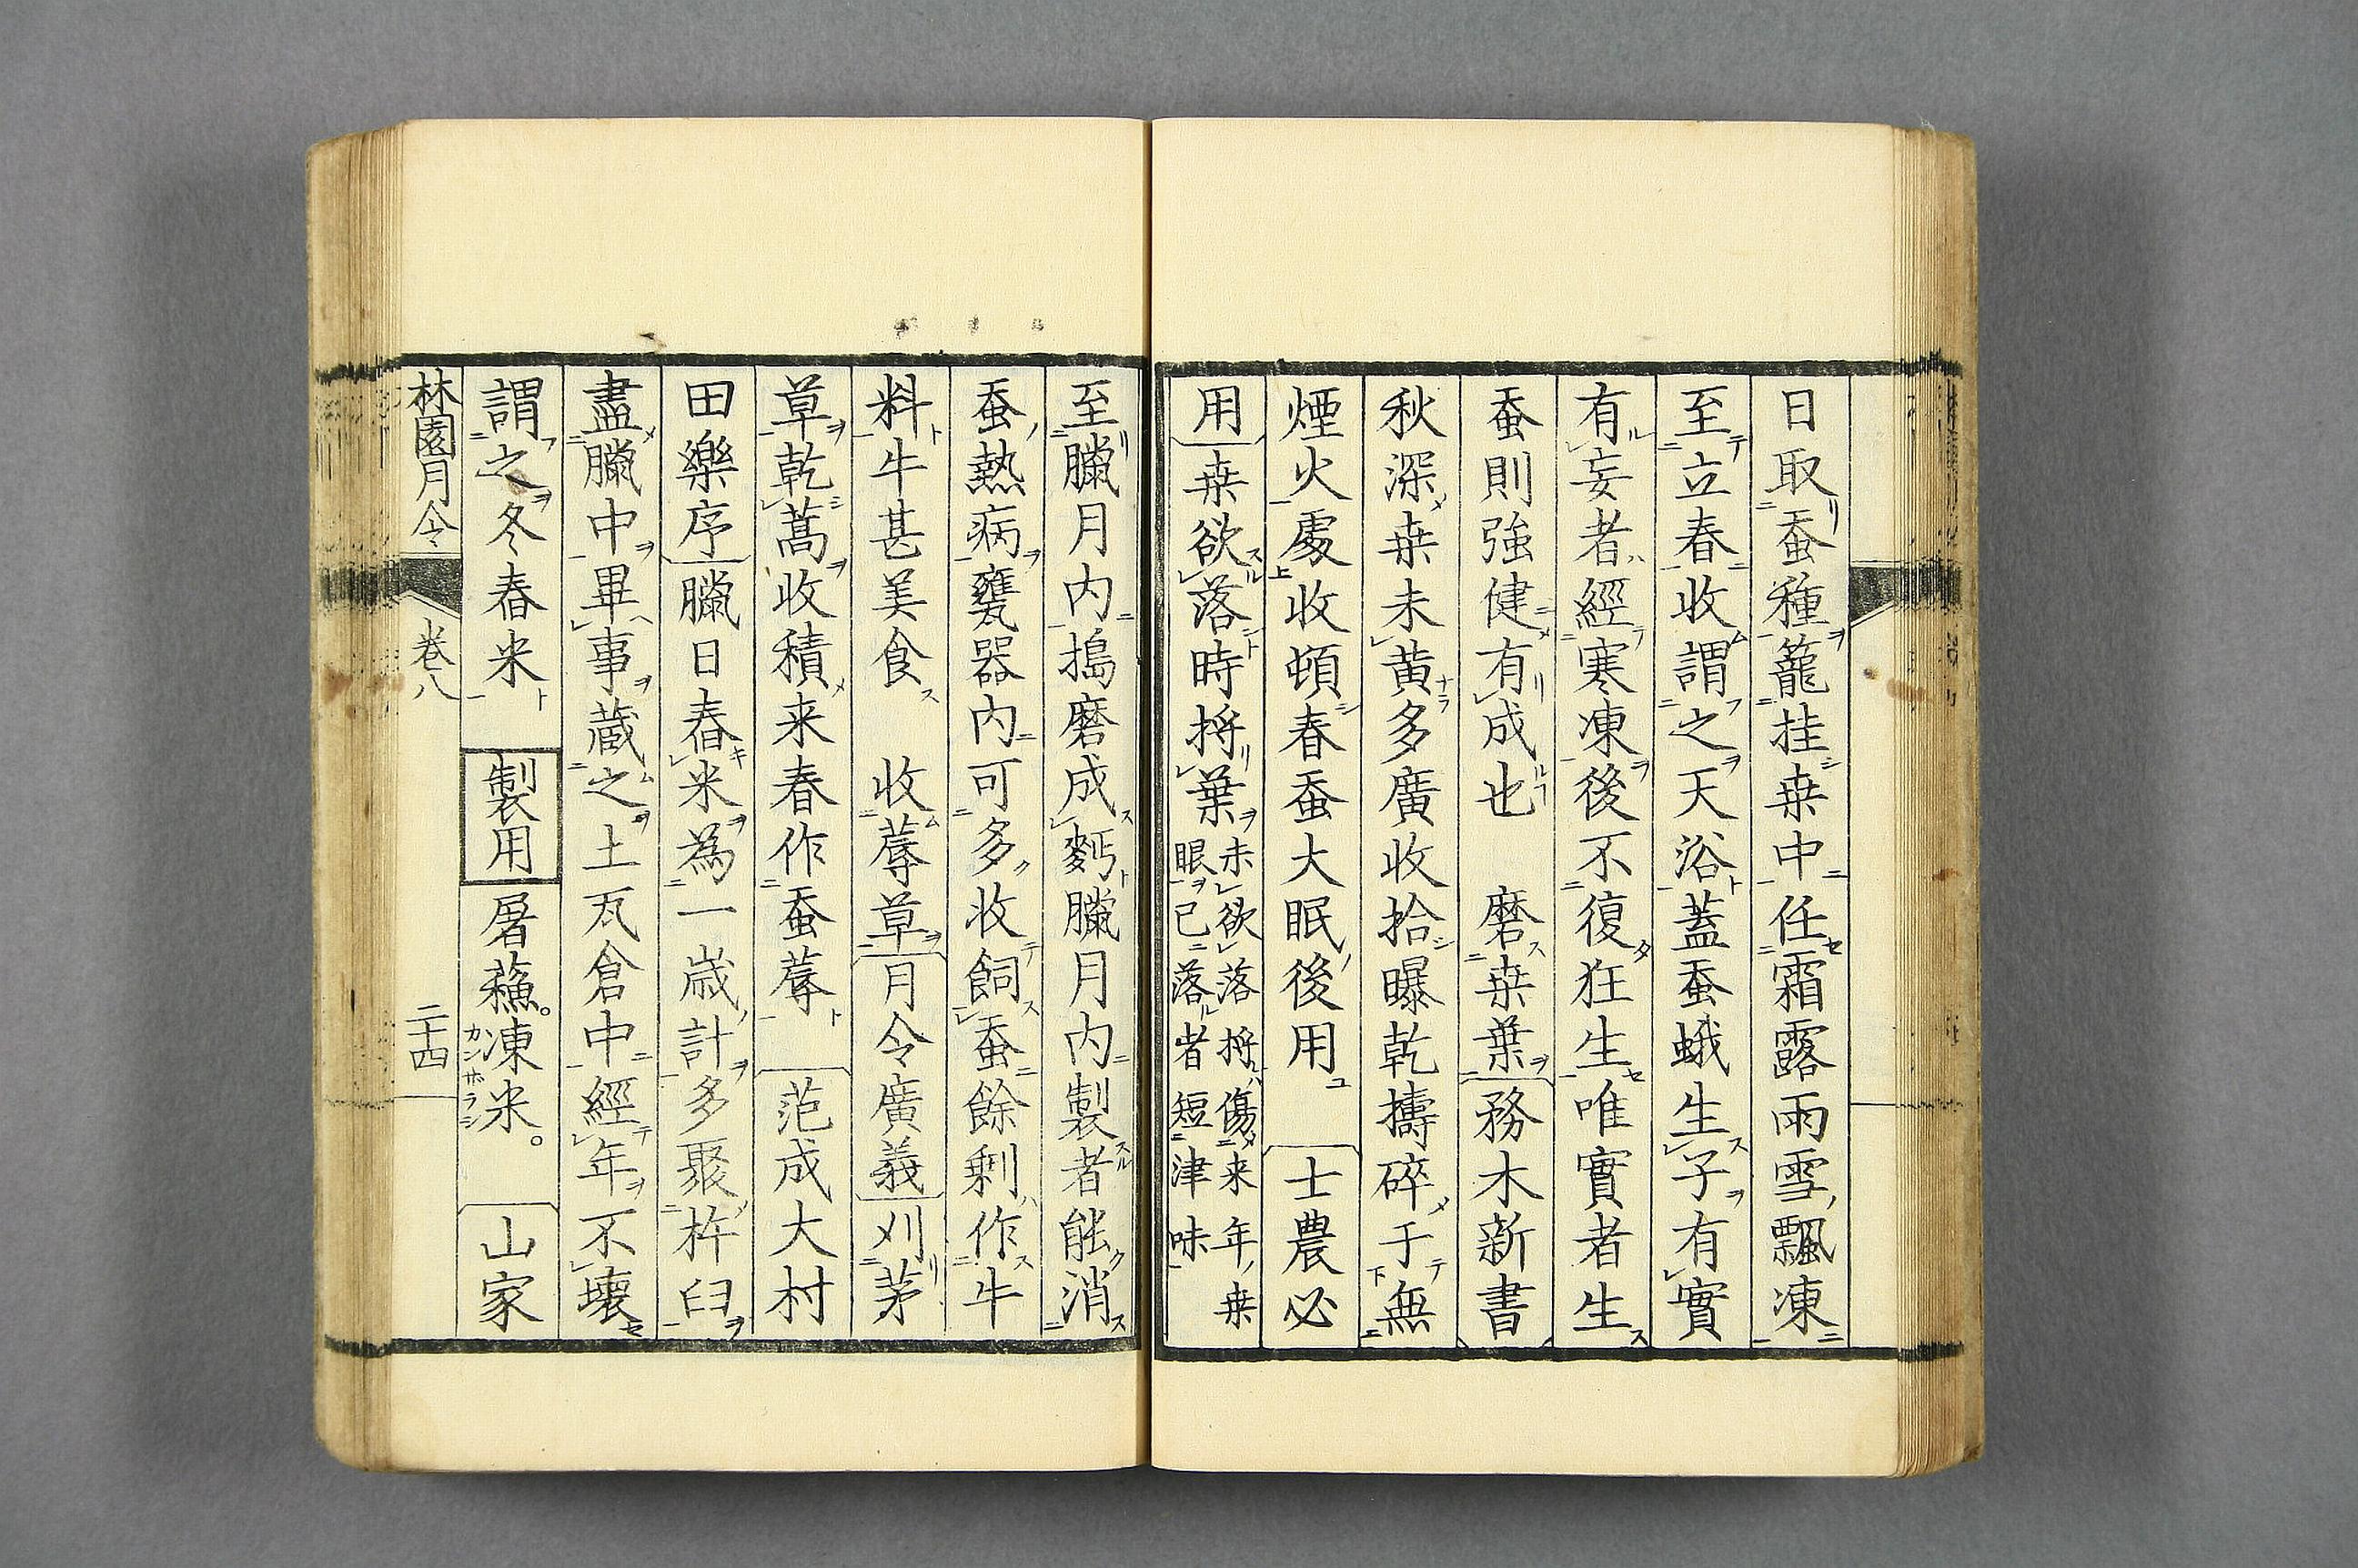 日取蚕種籠挂桒中任霜露雨雪飄凍
至立春收謂之天浴蓋蚕蛾生子有實
有妄者經寒凍後不復狂生唯實者生
蚕則強健有成也　磨桒葉務木新書
秋深桒未黄多廣收拾曝乾擣碎于無
煙火處收頓春蚕大眠後用　士農必
用桒欲落時捋葉未欲落捋傷来年桒
眼已落者短津味
至臘月内搗磨成麪臘月内製者能消
蚕熱病甕器内可多收飼蚕餘剰作牛
料牛甚美食　收蓐草月令廣義刈茅
草乾蒿收積来春作蚕蓐　范成大村
田樂序臘日舂米為一歳計多聚杵臼
盡臘中畢事蔵之土瓦倉中經年不壊
謂之冬舂米　製用　屠蘓。凍米。　山家
カンホラシ
林園月令　卷八　二十四